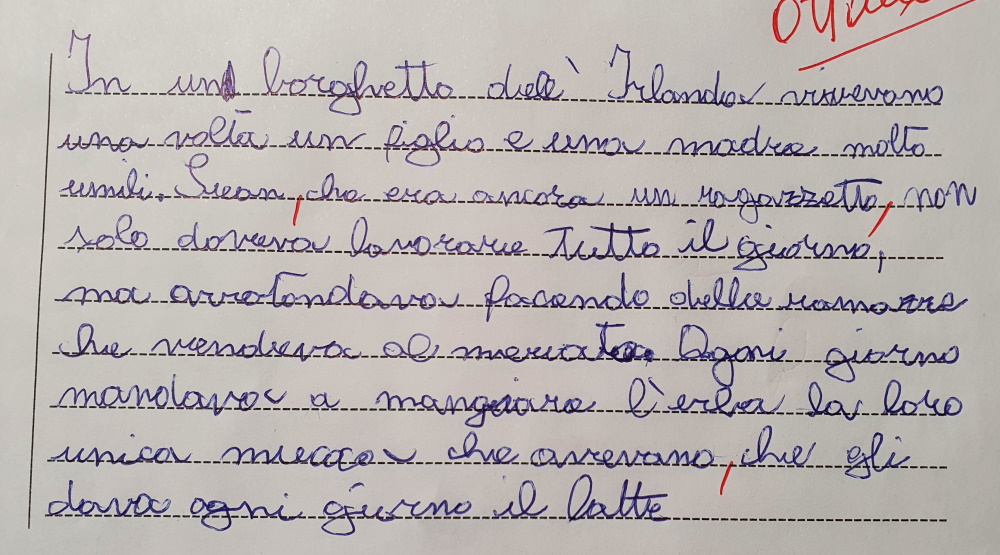 In un borghetto dell' Irlanda vivevano
una volta un figlio e una madre molto
umili. che era ancora un ragazzetto, non
solo doveva lavorare tutto il giorno,
ma arrotondava facendo delle ramazze
che vendeva al mercato. Ogni giorno
mandava a mangiare l'erba la loro
unica mucca che avevano, che gli
dava ogni giorno il latte